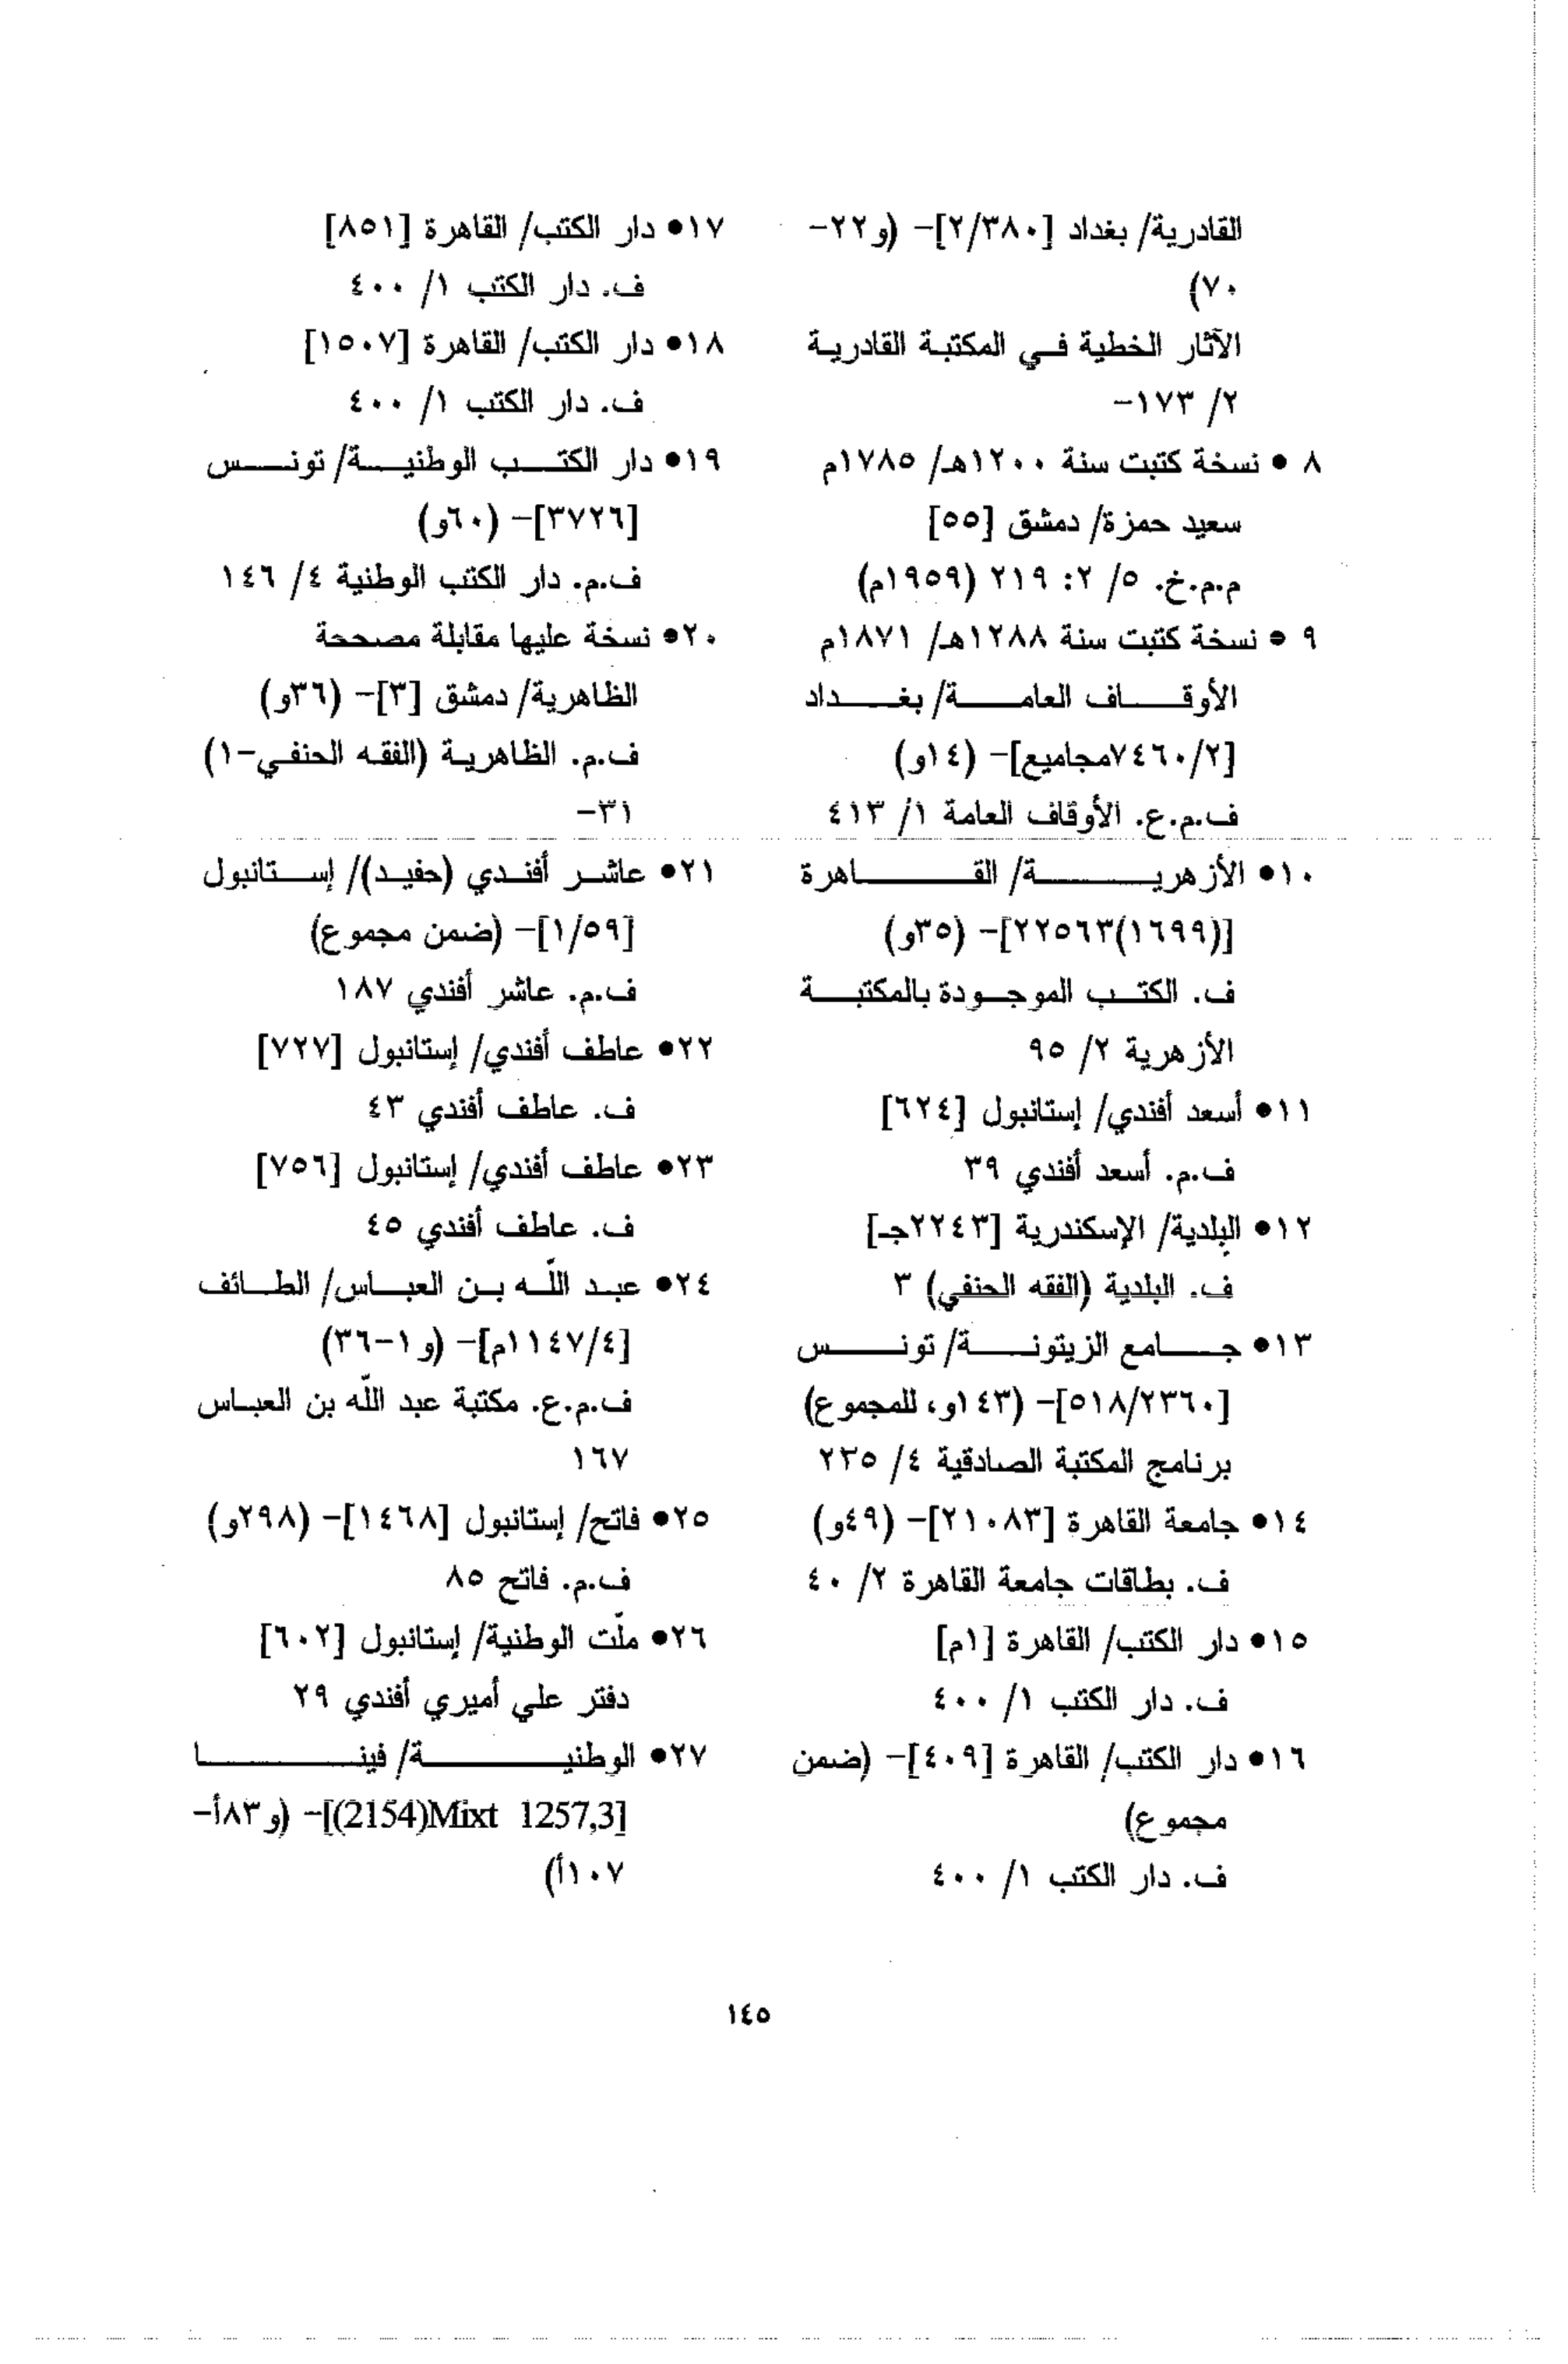 القادرية/ بغداد [٢/٣٨٠]- (و٢٢-
٧٠)
الآثار الخطية في المكتبة القادرية
٢/ ١٧٣-
٨ • نسخة كتبت سنة ١٢٠٠هـ/ ١٧٨٥م
سعيد حمزة/ دمشق [٥٥]
م.م.خ. ٥/ ٢: ٢١٩ (١٩٥٩م)
٩ • نسخة كتبت سنة ١٢٨٨هـ/ ١٨٧١م
الأوقاف العامة/ بغداد
[٧٤٦٠/٢مجاميع]- (١٤و)
ف.م.ع. الأوقاف العامة ١/ ٤١٣
١٠• الأزهرية/ القاهرة
[(١٦٩٩)٢٢٥٦٣]- (٣٥و)
ف. الكتب الموجودة بالمكتبة
الأزهرية ٢/ ٩٥
١١• أسعد أفندي/ إستانبول [٦٢٤]
ف.م. أسعد أفندي ٣٩
١٢• البلدية/ الإسكندرية [٢٢٤٣جـ]
ف. البلدية (الفقه الحنفي) ٣
١٣• جامع الزيتونة/ تونس
[٥١٨/٢٣٦٠]- (١٤٣و، للمجموع)
برنامج المكتبة الصادقية ٤/ ٢٣٥
١٤• جامعة القاهرة [٢١٠٨٣]- (٤٩و)
ف. بطاقات جامعة القاهرة ٢/ ٤٠
١٥• دار الكتب/ القاهرة [١م]
ف. دار الكتب ١/ ٤٠٠
١٦• دار الكتب/ القاهرة [٤٠٩]- (ضمن
مجموع)
ف. دار الكتب ١/ ٤٠٠
١٧• دار الكتب/ القاهرة [٨٥١]
ف. دار الكتب ١/ ٤٠٠
١٨• دار الكتب/ القاهرة [١٥٠٧]
ف. دار الكتب ١/ ٤٠٠
١٩• دار الكتب الوطنية/ تونس
[٣٧٢٦]- (٦٠و)
ف.م. دار الكتب الوطنية ٤/ ١٤٦
٢٠• نسخة عليها مقابلة مصححة
الظاهرية/ دمشق [٣]- (٣٦و)
ف.م. الظاهرية (الفقه الحنفي-١)
٣١-
٢١• عاشر أفندي (حفيد)/ إستانبول
[١/٥٩]- (ضمن مجموع)
ف.م. عاشر أفندي ١٨٧
٢٢• عاطف أفندي/ إستانبول [٧٢٧]
ف. عاطف أفندي ٤٣
٢٣• عاطف أفندي/ إستانبول [٧٥٦]
ف. عاطف أفندي ٤٥
٢٤• عبد اللّه بن العباس/ الطائف
[١١٤٧/٤م]- (و١-٣٦)
ف.م.ع. مكتبة عبد اللّه بن العباس
١٦٧
٢٥• فاتح/ إستانبول [١٤٦٨]- (٢٩٨و)
ف.م. فاتح ٨٥
٢٦• ملّت الوطنية/ إستانبول [٦٠٢]
دفتر علي أميري أفندي ٢٩
٢٧• الوطنية/ فينا
[Mixt 1257,3(2154)]- (و٨٣أ-
١٠٧أ)
١٤٥